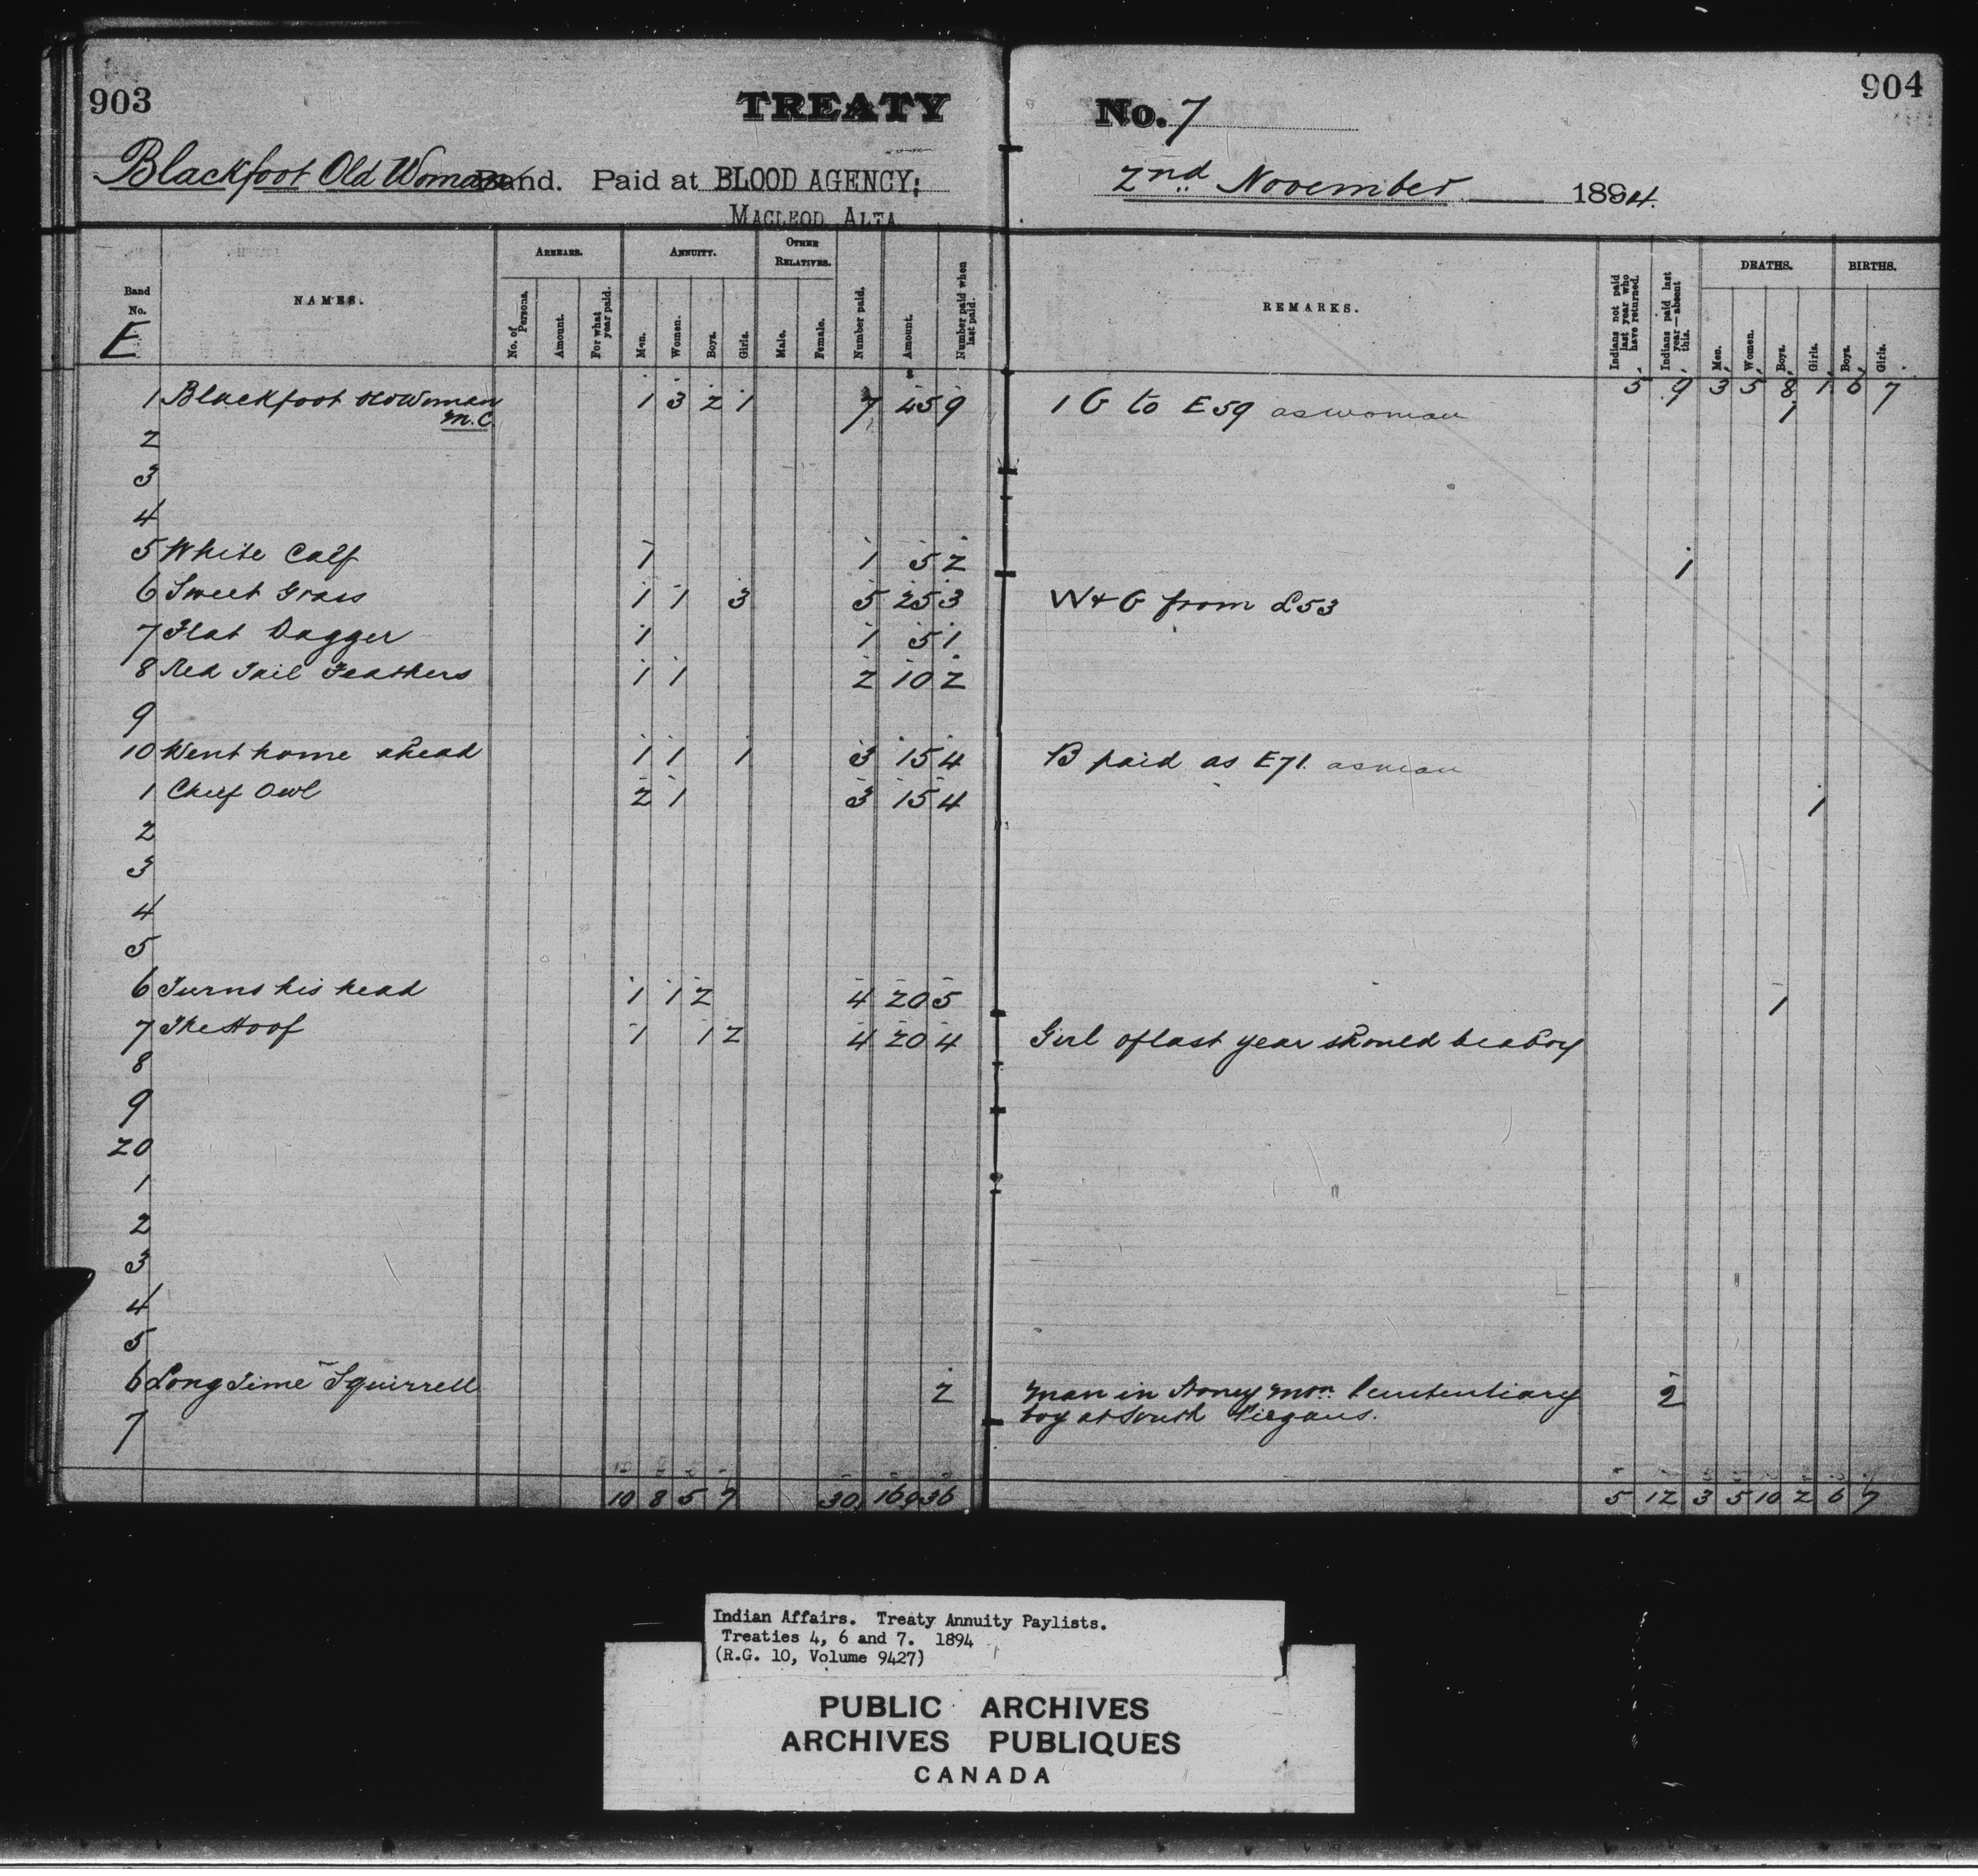 903
TREATY No. 7
904
Blackfoot Old Woman Band. Paid at BLOOD AGENCY; 2nd November 1894.
MACLEOD, ALTA
Band No. NAMES. ARREARS. ANNUITY. OTHER RELATIVES. Number paid. Amount. Number paid when last paid. REMARKS. Indians not paid last year who have returned. Indians paid last year—absent this. DEATHS. BIRTHS.
No. of Persons. Amount. For what year paid. Men. Women. Boys. Girls. Male. Female. Men. Women. Boys. Girls. Boys. Girls.
E
5 9 3 5 8 1 6 7
1 Blackfoot Old Woman 1 3 2 1 7 45 9 1 G to E 59 as woman 1
M.C.
2
3
4
5 White Calf 1 1 5 2 1
6 Sweet Grass 1 1 3 5 25 3 W & G from E53
7 Flat Dagger 1 1 5 1
8 Red Tail Feathers 1 1 2 10 2
9
10 Went home ahead 1 1 1 3 15 4 B paid as E71. as man
1 Chief Owl 2 1 3 15 4 1
2
3
4
5
6 Turns his head 1 1 2 4 20 5 1
7 The Hoof 1 1 2 4 20 4 Girl of last year should be a boy
8
9
20
1
2
3
4
5
6 Long Time Squirrell 2 Man in Stoney Mon Penitentiary 2
boy at South Piegans.
7
10 8 5 7 30 160 36 5 12 3 5 10 2 6 7
Indian Affairs. Treaty Annuity Paylists.
Treaties 4, 6 and 7. 1894
(R.G. 10, Volume 9427)
PUBLIC ARCHIVES
ARCHIVES PUBLIQUES
CANADA